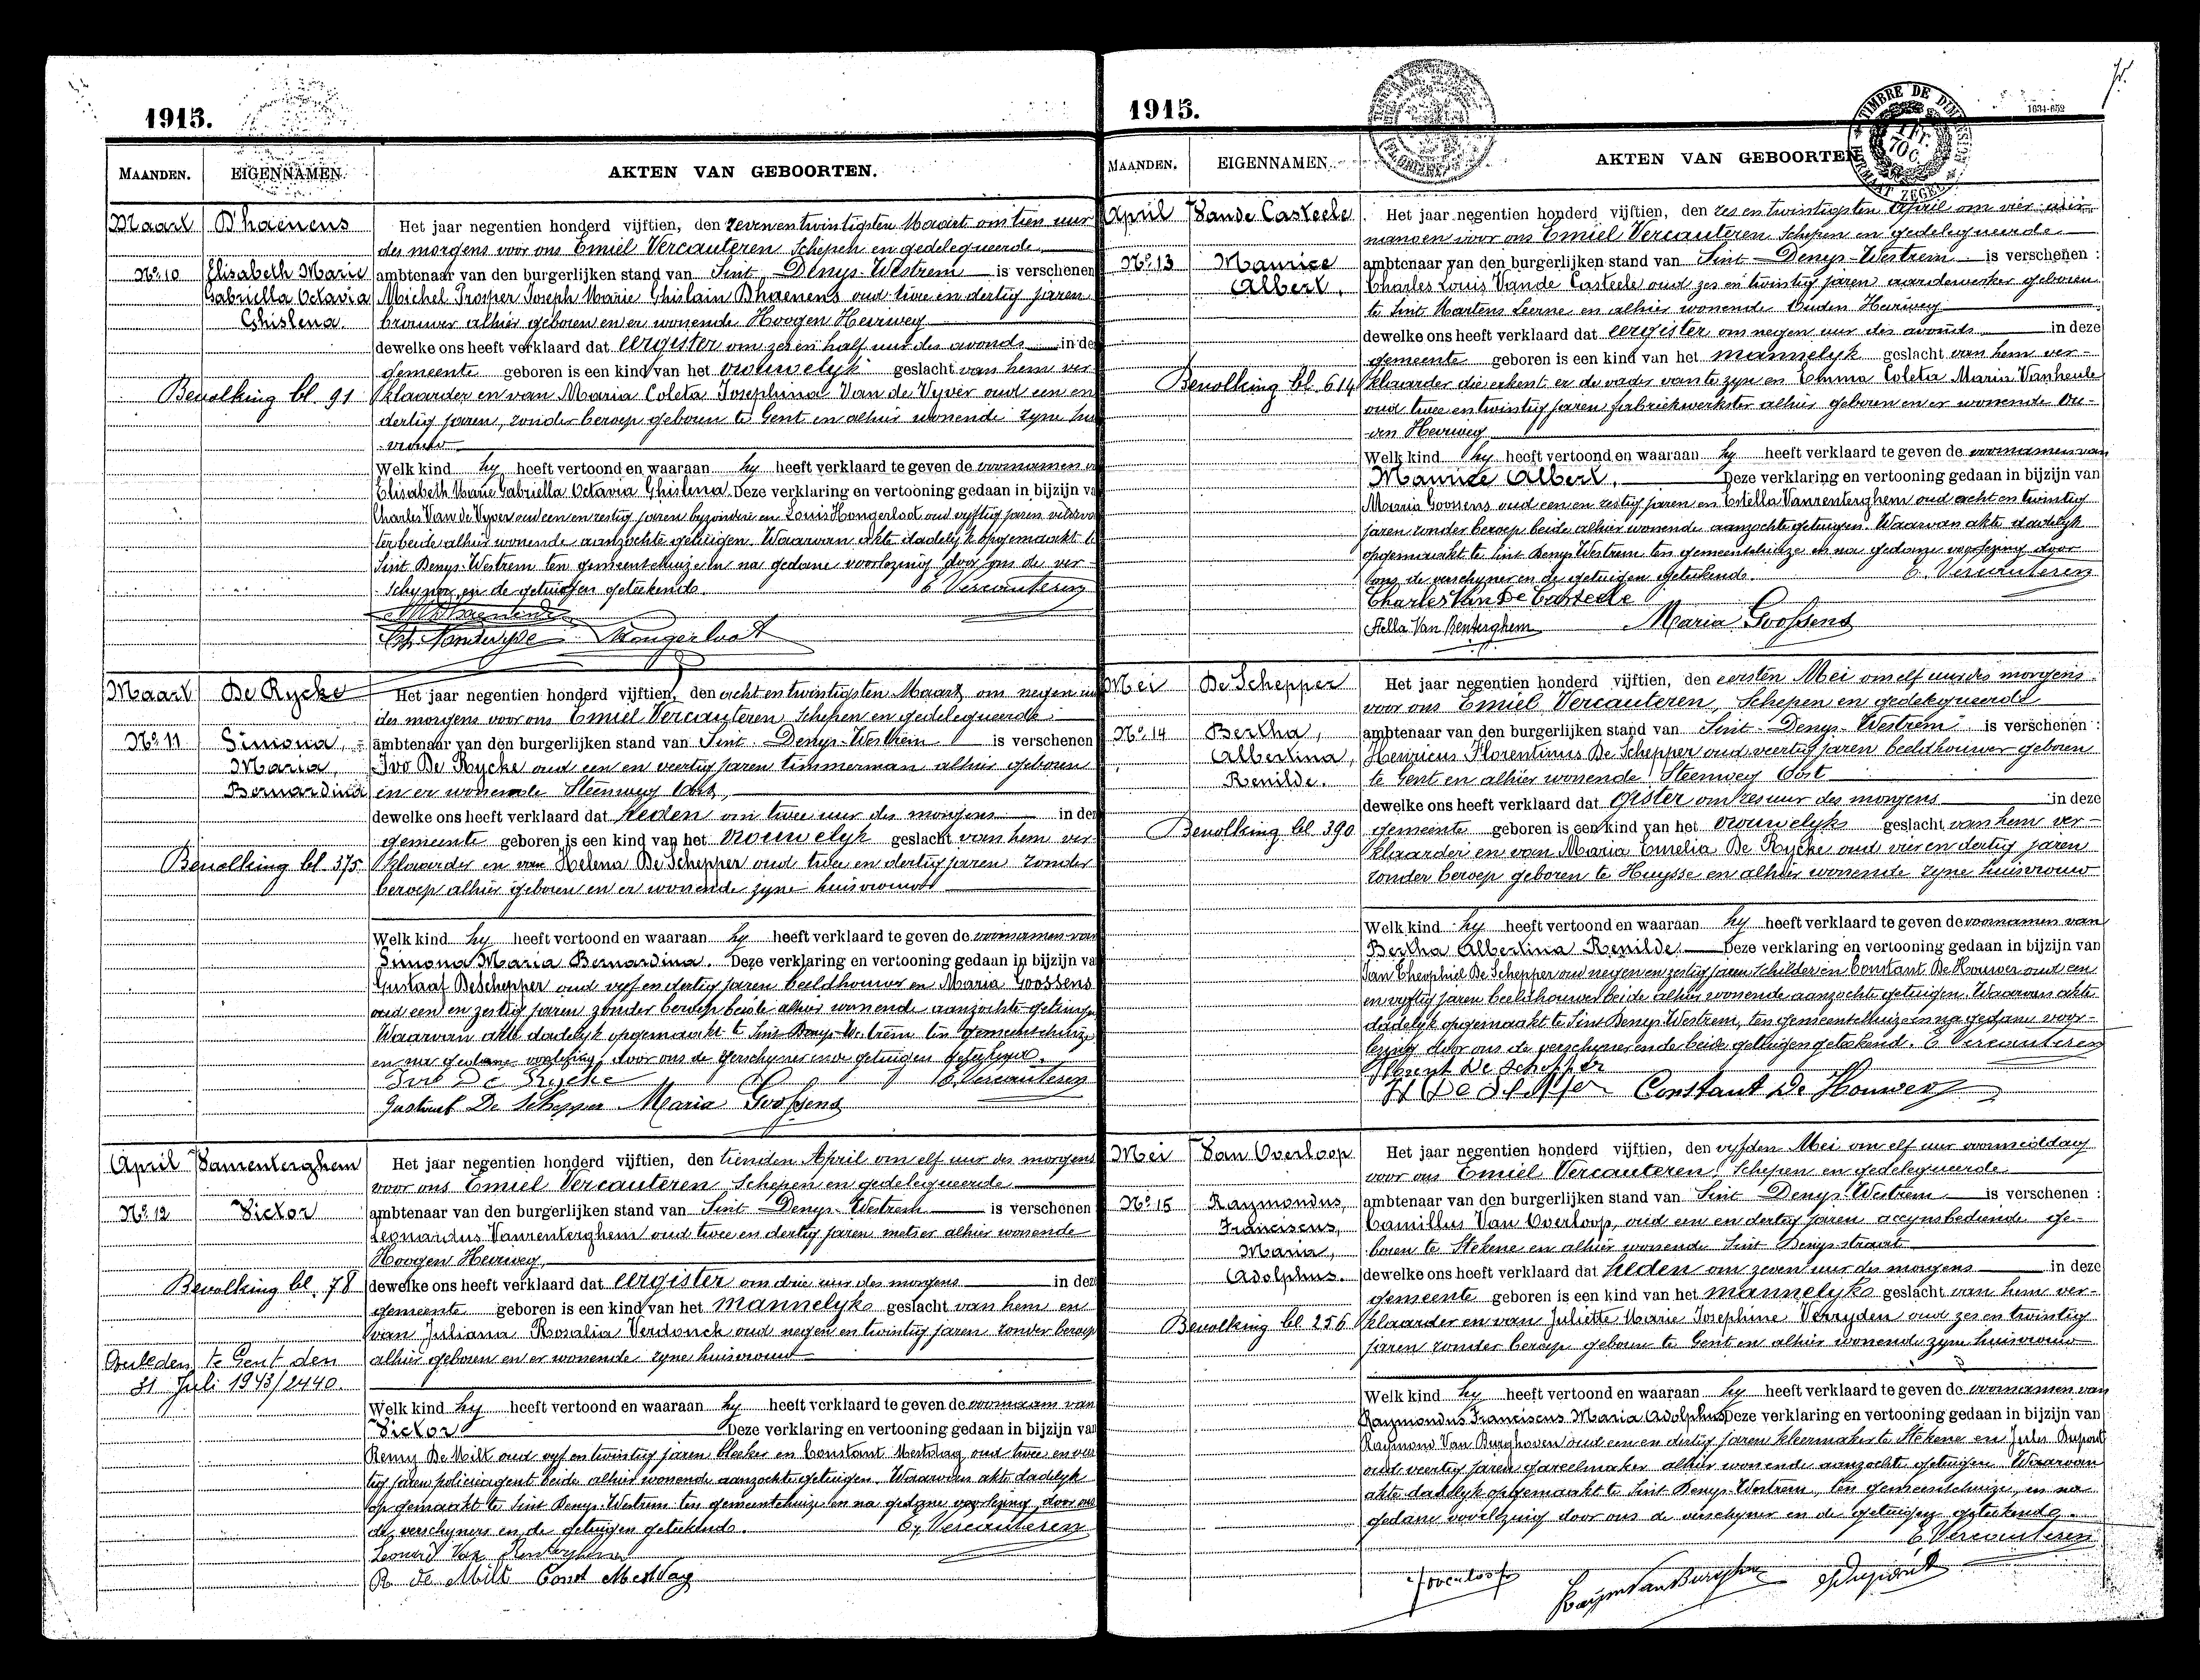 1915.
MAANDEN. EIGENNAMEN. AKTEN VAN GEBOORTEN.
Maart Dhaenens Het jaar negentien honderd vijftien, den zevenentwintigsten Maart om tien uur
des morgens voor ons Emiel Vercauteren Schepen en gedelegueerde
No. 10 Elisabeth Marie ambtenaar van den burgerlijken stand van Sint Denys-Westrem is verschenen
Gabriella Octavia Michel Prosper Joseph Marie Ghislain Dhaenens oud twee en dertig jaren
Ghislena. brouwer alhier geboren en er wonende Hoogen Heirweg
dewelke ons heeft verklaard dat eergister om zes en half uur des avonds in de
gemeente geboren is een kind van het vrouwelyk geslacht van hem ver-
Bevolking bl. 91 klaarder en van Maria Coleta Josephina Van de Vyver oud een en
dertig jaren, zonder beroep geboren te Gent en alhier wonende zyne hu
vrouw
Welk kind hy heeft vertoond en waaraan hy heeft verklaard te geven de voornamen v
Elisabeth Marie Gabriella Octavia Ghislena Deze verklaring en vertooning gedaan in bijzijn va
Charles Van de Vyver oud een en zestig jaren byzondere en Louis Hongerloot oud vyftig jaren veldwa
ter beide alhier wonende aanzochte getuigen. Waarvan akte dadelyk opgemaakt t
Sint Denys-Westrem ten gemeentehuize en na gedane voorlezing door ons de ver
schyner en de getuigen geteekend. E. Vercauteren
Ch. Vandevyvere Hongerloot
Maart De Rycke Het jaar negentien honderd vijftien, den acht en twintigsten Maart om negen uu
des morgens voor ons Emiel Vercauteren Schepen en gedelegueerde
No. 11 Simona, ambtenaar van den burgerlijken stand van Sint-Denys-Westrem is verschenen
Maria, Ivo De Rycke oud een en veertig jaren timmerman alhier geboren
Bernardina en er wonende Steenweg Oost,
dewelke ons heeft verklaard dat heden om twee uur des morgens in de
gemeente geboren is een kind van het vrouwelyk geslacht van hem ver
Bevolking bl. 375. klaarder en van Helena De Schepper oud twee en dertig jaren zonder
beroep alhier geboren en er wonende zyne huisvrouw
Welk kind hy heeft vertoond en waaraan hy heeft verklaard te geven de voornamen van
Simona Maria Bernardina. Deze verklaring en vertooning gedaan in bijzijn va
Gustaaf De Schepper oud vyf en dertig jaren beeldhouwer en Maria Goossens
oud een en zestig jaren zonder beroep beide alhier wonende aanzochte getuige
Waarvan akte dadelyk opgemaakt te Sint-Denys-Westrem ten gemeentehuize
en na gedane voorlezing door ons de verschyner en de getuigen geteekend.
Ivo De Rycke E. Vercauteren
Gustaaf De Schepper Maria Goossens
April Vanrenterghem Het jaar negentien honderd vijftien, den tienden April om elf uur des morgens
voor ons Emiel Vercauteren Schepen en gedelegueerde
No. 12 Victor ambtenaar van den burgerlijken stand van Sint-Denys-Westrem is verschenen
Leonardus Vanrenterghem oud twee en dertig jaren metser alhier wonende
Hoogen Heirweg,
Bevolking bl. 78 dewelke ons heeft verklaard dat eergister om drie uur des morgens in deze
gemeente geboren is een kind van het mannelyk geslacht van hem en
van Juliana Rosalia Verdonck oud negen en twintig jaren zonder beroep
Overleden te Gent den alhier geboren en er wonende zyne huisvrouw
31 Juli 1943/2440.
Welk kind hy heeft vertoond en waaraan hy heeft verklaard te geven de voornaam van
Victor Deze verklaring en vertooning gedaan in bijzijn va
Remy De Milt oud vyf en twintig jaren bleeker en Constant Mestdag oud twee en veer
tig jaren policieagent beide alhier wonende aanzochte getuigen. Waarvan akte dadelyk
opgemaakt te Sint Denys-Westrem ten gemeentehuize en na gedane voorlezing door ons
de verschyners en de getuigen geteekend. E. Vercauteren
Leonard Van Renterghem
R. de Milt Const Mestdag
1915.
MAANDEN. EIGENNAMEN. AKTEN VAN GEBOORTEN
April Vande Casteele Het jaar negentien honderd vijftien, den zes en twintigsten April om vier uur
voor ons Emiel Vercauteren Schepen en gedelegueerde
No. 13 Maurice ambtenaar van den burgerlijken stand van Sint-Denys-Westrem is verschenen :
Albert. Charles Louis Vande Casteele oud zes en twintig jaren aardewerker geboren
te Sint Martens Leerne en alhier wonende Ouden Heirweg
dewelke ons heeft verklaard dat eergister om negen uur des avonds in deze
gemeente geboren is een kind van het mannelyk geslacht van hem ver-
Bevolking bl. 614 klaarder die erkent er de vader van te zyn en Emma Coleta Maria Vanheule
oud twee en twintig jaren fabriekwerkster alhier geboren en er wonende Ou-
den Heirweg
Welk kind hy heeft vertoond en waaraan hy heeft verklaard te geven de voornamen van
Maurice Albert. Deze verklaring en vertooning gedaan in bijzijn van
Maria Goossens oud een en zestig jaren en Estella Vanrenterghem oud acht en twintig
jaren zonder beroep beide alhier wonende aanzochte getuigen. Waarvan akte dadelyk
opgemaakt te Sint Denys Westrem ten gemeentehuize en na gedane voorlezing door
ons de verschyner en de getuigen geteekend. E. Vercauteren
Charles Van De Casteele
Stella Van Renterghem Maria Goossens
Mei De Schepper Het jaar negentien honderd vijftien, den eersten Mei om elf uur des morgens
voor ons Emiel Vercauteren, Schepen en gedelegueerde
No. 14 Bertha, ambtenaar van den burgerlijken stand van Sint-Denys-Westrem is verschenen :
Albertina, Henricus Florentinus De Schepper oud veertig jaren beeldhouwer geboren
Renilde. te Gent en alhier wonende Steenweg Oost
dewelke ons heeft verklaard dat gister om zes uur des morgens in deze
Bevolking bl. 390 gemeente geboren is een kind van het vrouwelyk geslacht van hem ver-
klaarder en van Maria Emelia De Rycke oud vier en dertig jaren
zonder beroep geboren te Huysse en alhier wonende zyne huisvrouw
Welk kind hy heeft vertoond en waaraan hy heeft verklaard te geven de voornamen van
Bertha Albertina Renilde Deze verklaring en vertooning gedaan in bijzijn van
Jan Theophiel De Schepper oud negen en zestig jaren Schilder en Constant De Houwer oud een
en vyftig jaren beeldhouwer beide alhier wonende aanzochte getuigen. Waarvan akte
dadelyk opgemaakt te Sint Denys-Westrem, ten gemeentehuize en na gedane voor-
lezing door ons de verschyner en de beide getuigen geteekend. E. Vercauteren
De Schepper
De Schepper Constant De Houwer
Mei Van Overloop Het jaar negentien honderd vijftien, den vyfden Mei om elf uur voormiddag
voor ons Emiel Vercauteren Schepen en gedelegueerde
No. 15 Raymondus, ambtenaar van den burgerlijken stand van Sint-Denys-Westrem is verschenen :
Franciscus, Camillus Van Overloop, oud een en dertig jaren accynsbediende ge-
Maria, boren te Stekene en alhier wonende Sint Denys-straat
Adolphus. dewelke ons heeft verklaard dat heden om zeven uur des morgens in deze
gemeente geboren is een kind van het mannelyk geslacht van hem ver-
Bevolking bl. 256 klaarder en van Juliette Marie Josephine Verryden oud zes en twintig
jaren zonder beroep geboren te Gent en alhier wonende zyne huisvrouw
Welk kind hy heeft vertoond en waaraan hy heeft verklaard te geven de voornamen van
Raymondus Franciscus Maria Adolphus Deze verklaring en vertooning gedaan in bijzijn van
Raymond Van Burghoven oud een en dertig jaren kleermaker te Stekene en Jules Dupont
oud veertig jaren gareelmaker alhier wonende aanzochte getuigen Waarvan
akte dadelyk opgemaakt te Sint Denys-Westrem, ten gemeentehuize, en na
gedane voorlezing door ons de verschyner en de getuigen geteekend.
E. Vercauteren